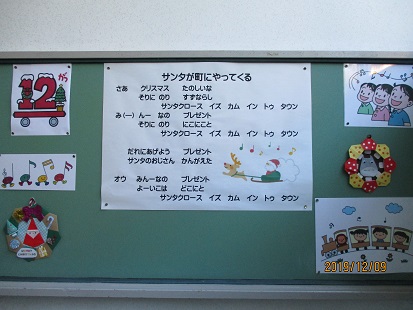 12がつ
サンタが町にやってくる
さあ クリスマス たのしいな
そりに のり すずならし
サンタクロース イズ カム イン トゥ タウン
み（ー）んー なの プレゼント
そりに のり にこにこと
サンタクロース イズ カム イン トゥ タウン
だれにあげよう プレゼント
サンタのおじさん かんがえた
オウ みんーなの プレゼント
よーいこは どこにと
サンタクロース イズ カム イン トゥ タウン
2019/12/09